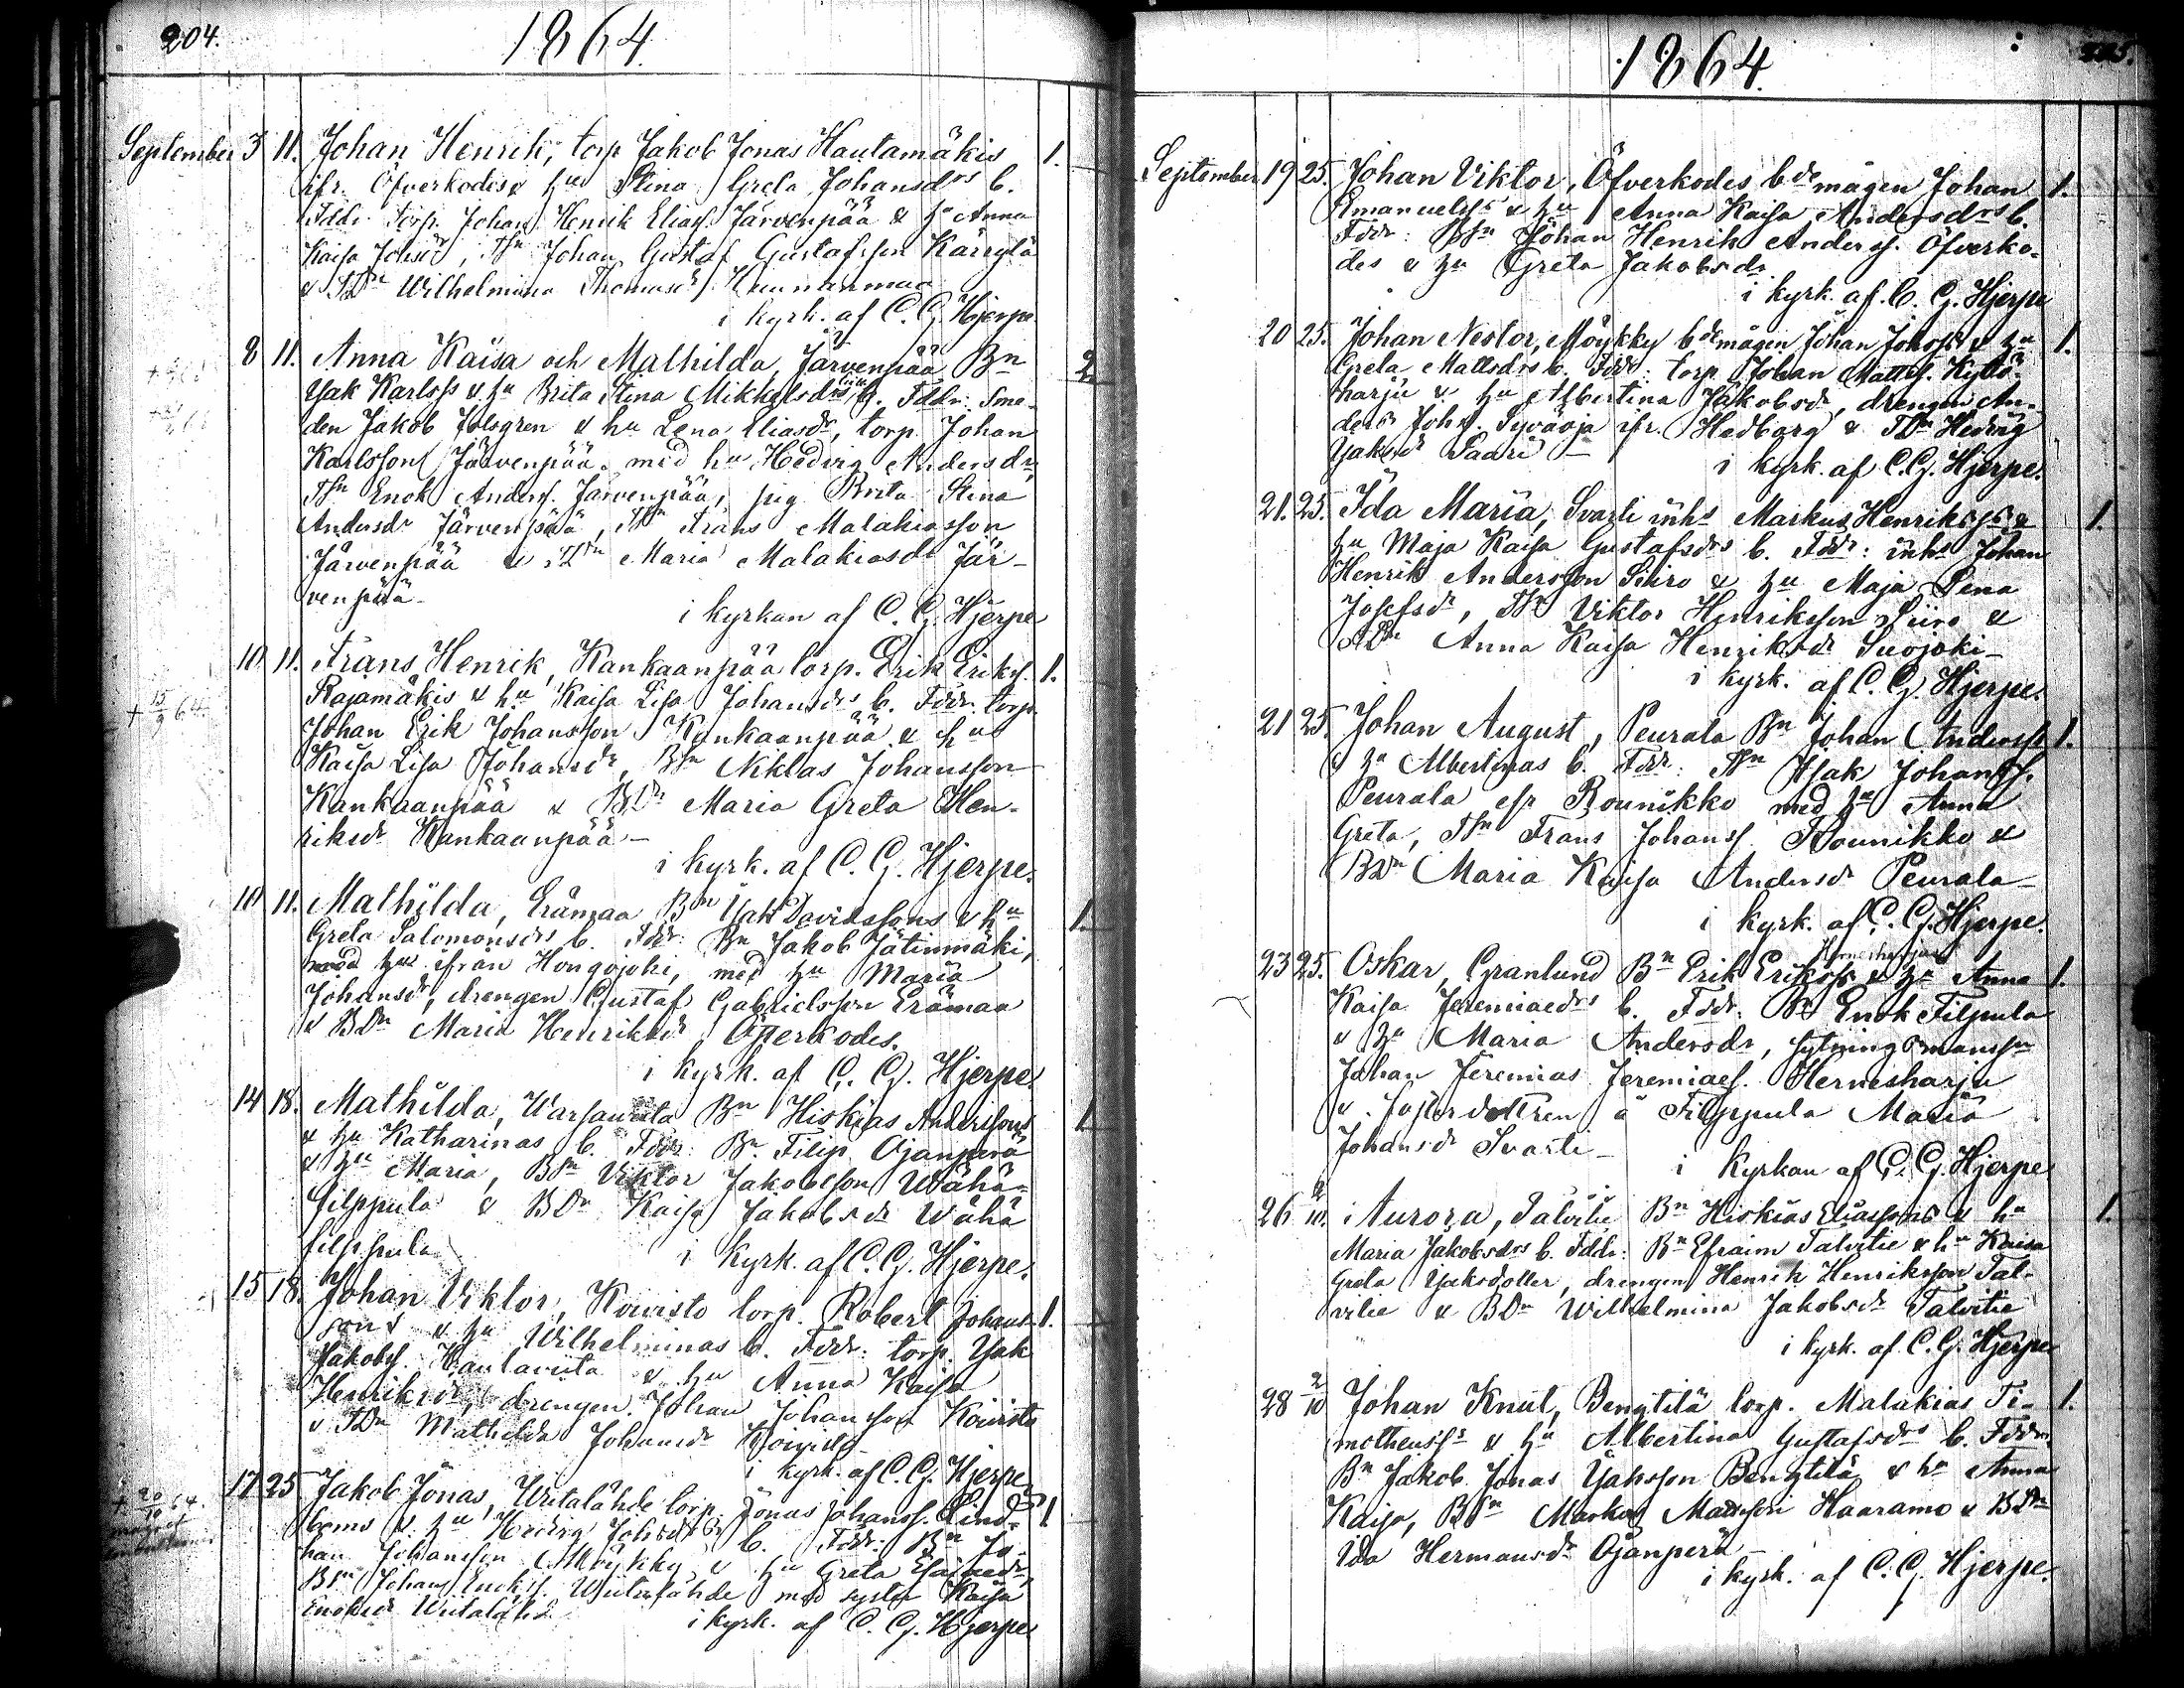 204.
1864.
September 3 11. Johan Henrik, torp Jakob Jonas Hautamäkis 1.
ifr. Öfverkodes & hu Stina Greta Johansdrs b.
Fddr torp. Johan Henrik Eliass. Järvenpää & hu Anna
Kaisa Johsdr, Johan Gustaf Gustafsson Kärrylä
& TDn Wilhelmina Thomasdr
i kyrk. af C. G. Hjerpe
8 11. Anna Kaisa och Mathilda, Järvenpää Bn 2
Isak Karlss & hu Brita Stina Mikkelsdrs b. Fddr: Sme-
den Jakob & hu Lena Eliasdr, torp. Johan
Karlsson Järvenpää med hu Hedvig Andersdr,
TSn Enok Anderss. Järvenpää, pig Brita Stina
Andersdr Järvenpää, TSn Frans Malakiasson
Järvenpää & TDn Maria Malakiasdr Jär-
venpää
i kyrkan af C. G. Hjerpe
10 11. Frans Henrik, Kankaanpää torp. Erik Erikss. 1.
+ 15/9 64
Rajamäkis & hu Kaisa Lisa Johansdrs b. Fddr torp.
Johan Erik Johansson Kankaanpää & hu
Kaisa Lisa Johansdr, BSn Niklas Johansson
Kankaanpää & BDn Maria Greta Hen-
riksdr Kankaanpää
i kyrk. af C. G. Hjerpe.
10 11. Mathilda, Erämaa Bn Isak Davidssons & hu 1.
Greta Salomonsdrs b. Fddr: Bn Jakob Jätinmäki,
ifrån Hongojoki, med hu Maria
Johansdr, drengen Gustaf Gabrielsson Erämaa
& BDn Maria Henriksdr Öfverkodes.
i kyrk. af C. G. Hjerpe
14 18. Mathilda, Bn Hiskias Anderssons 1.
& hu Katharinas b. Fddr: Bn Filip Ojanperä
& hu Maria, BSn Viktor Jakobsson Wähä-
filppula & BDn Kaisa Jakobsdr Wähä
filppula
i kyrk. af C. G. Hjerpe.
15 18. Johan Viktor, Koivisto torp. Robert Johans- 1.
sons & hu Wilhelminas b. Fddr: torp. Isak
Jakobss. Hautaviita & hu Anna Kaisa
Henriksdr, drengen Johan Johansson Koivisto
& TDn Mathilda Johansdr Koivisto
i kyrk. af C. G. Hjerpe
17 25 Jakob Jonas, Wiitalähde torp. Jonas Johanss. Lind- 1
+ 20/10 64.
boms & hu Hedvig Johsdrs b. Fddr: Bn Jo-
han Johansson Möykky & hu Greta
BSn Johan Enokss. Wiitalähde med syster Kaisa
Enoksdr Wiitalähde
i kyrk. af C. G. Hjerpe
1864.
September 19 25. Johan Viktor, Öfverkodes bde mågen Johan 1.
Emanuelss & hu Anna Kaisa Andersdrs b.
Fddr: BSn Johan Henrik Anderss. Öfverko-
des & hu Greta Jakobsdr
i kyrk. af C. G. Hjerpe
20 25. Johan Nestor, Möykky bdemågen Johan Johss & hu 1.
Greta Mattsdrs b. Fddr: torp Johan Mattss. Kytö-
harju & hu Albertina Jakobsdr, drengen An-
ders Johs. Syväoja ifr. Hedborg & TDn Hedvig
Isaksdr Saari
i kyrk. af C. G. Hjerpe.
21. 25. Ida Maria, Svarti inhs Markus Henrikss & 1.
hu Maja Kaisa Gustafsdrs b. Fddr: inhs Johan
Henrik Andersson Siiro & hu Maja Lena
Josefsdr, TSn Viktor Henriksson Siiro &
TDn Anna Kaisa Henriksdr Suojoki
i kyrk. af C. G. Hjerpe.
21 25. Johan August, Peurala Bn Johan Anderss 1.
& hu Albertinas b. Fddr: TSn Isak Johanss.
Peurala ifr Rounikko med hu Anna
Greta, TSn Frans Johanss. Rounikko &
BDn Maria Kaisa Andersdr Peurala
i kyrk. af C. G. Hjerpe.
Herneharju
23 25. Oskar, Granlund Bn Erik Erikss & hu Anna 1.
Kaisa Jeremiaedrs b. Fddr: Bn Enok Filpula
& hu Maria Andersdr, sytningsmanssn
Johan Jeremias Jeremiaes. Hernesharju
& fosterdottren å Filppula Maria
Johansdr Svarti
i kyrkan af C. G. Hjerpe
26 2/10. Aurora, Talvitie Bn Hiskias Eliassons & hu 1.
Maria Jakobsdrs b. Fddr: Bn Efraim Talvitie & hu Kaisa
Greta Isaksdotter, drengen Henrik Henriksson Tal-
vitie & BDn Wilhelmina Jakobsdr Talvitie
i kyrk. af C. G. Hjerpe
28 2/10 Johan Knut, Bengtilä torp. Malakias Ti- 1.
motheuss & hu Albertina Gustafsdrs b. Fddr.
Bn Jakob Jonas Isaksson Bengtilä & hu Anna
Kaisa, BSn Markus Mattsson Haaramo & BDn
Ida Hermansdr Ojanperä
i kyrk. af C. G. Hjerpe.